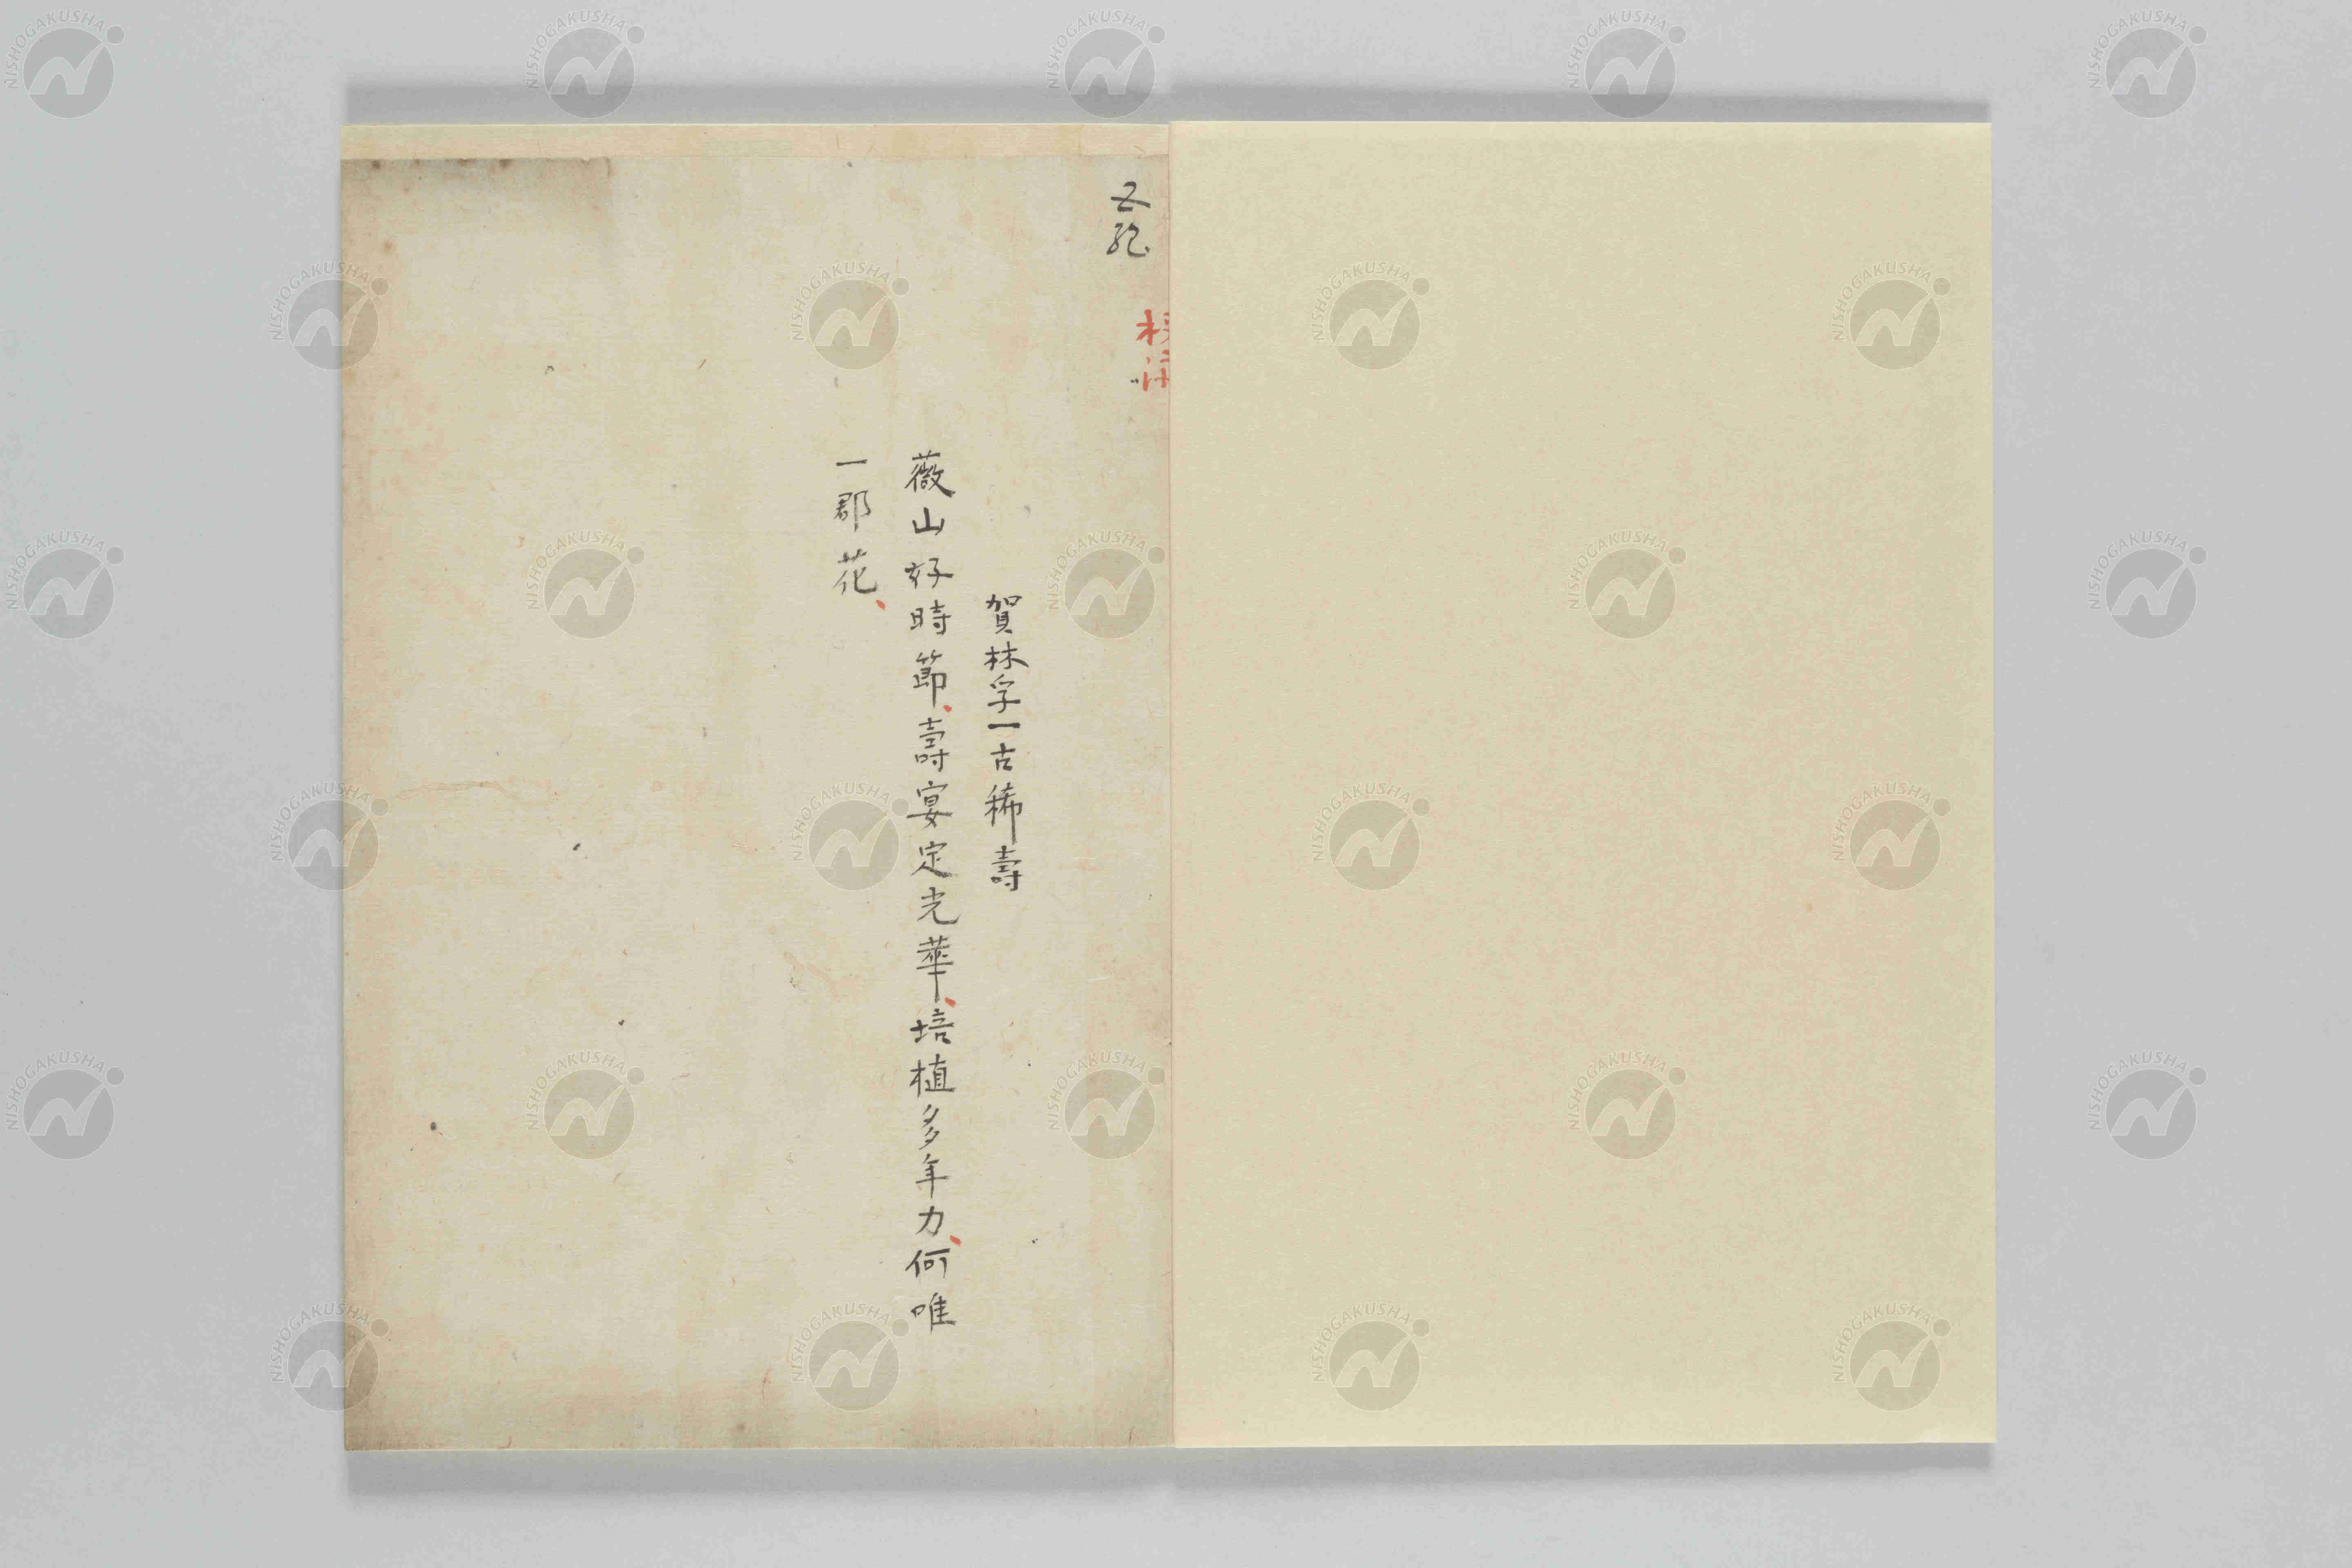 五絶
賀林孚一古稀壽
薇山好時節、壽宴定光華、培植多年力、何唯
一郡花、
NISHOGAKUSHA